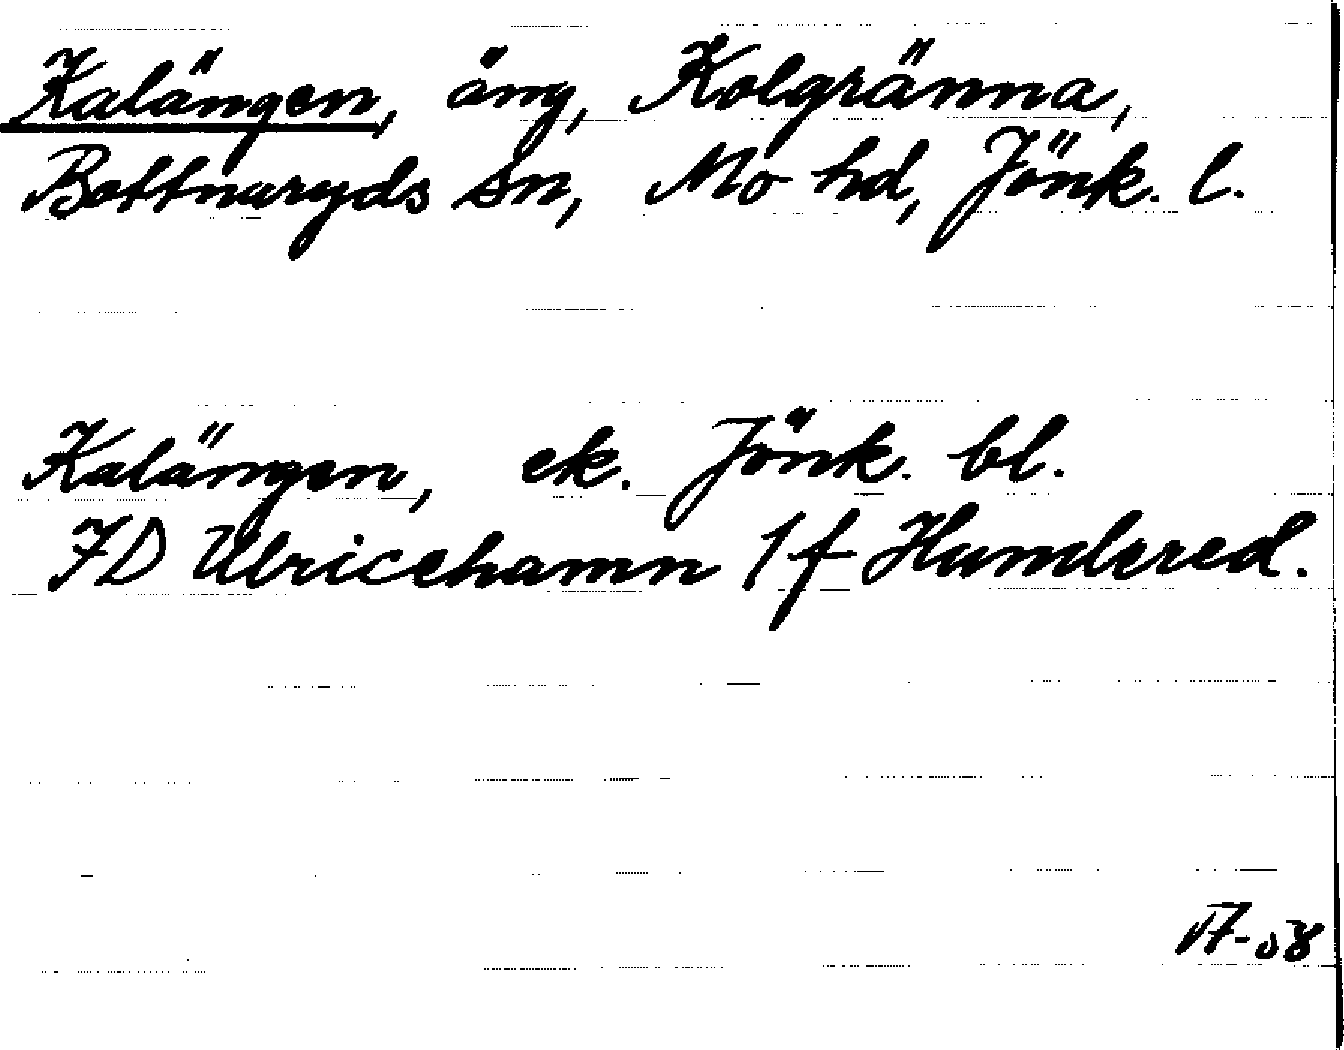 Kalängen, äng, Kolgränna,
Bottnaryds sn, Mo hd, Jönk. l.
Kalängen, ek. Jönk. bl.
7D Ulricehamn 1f Hundered.